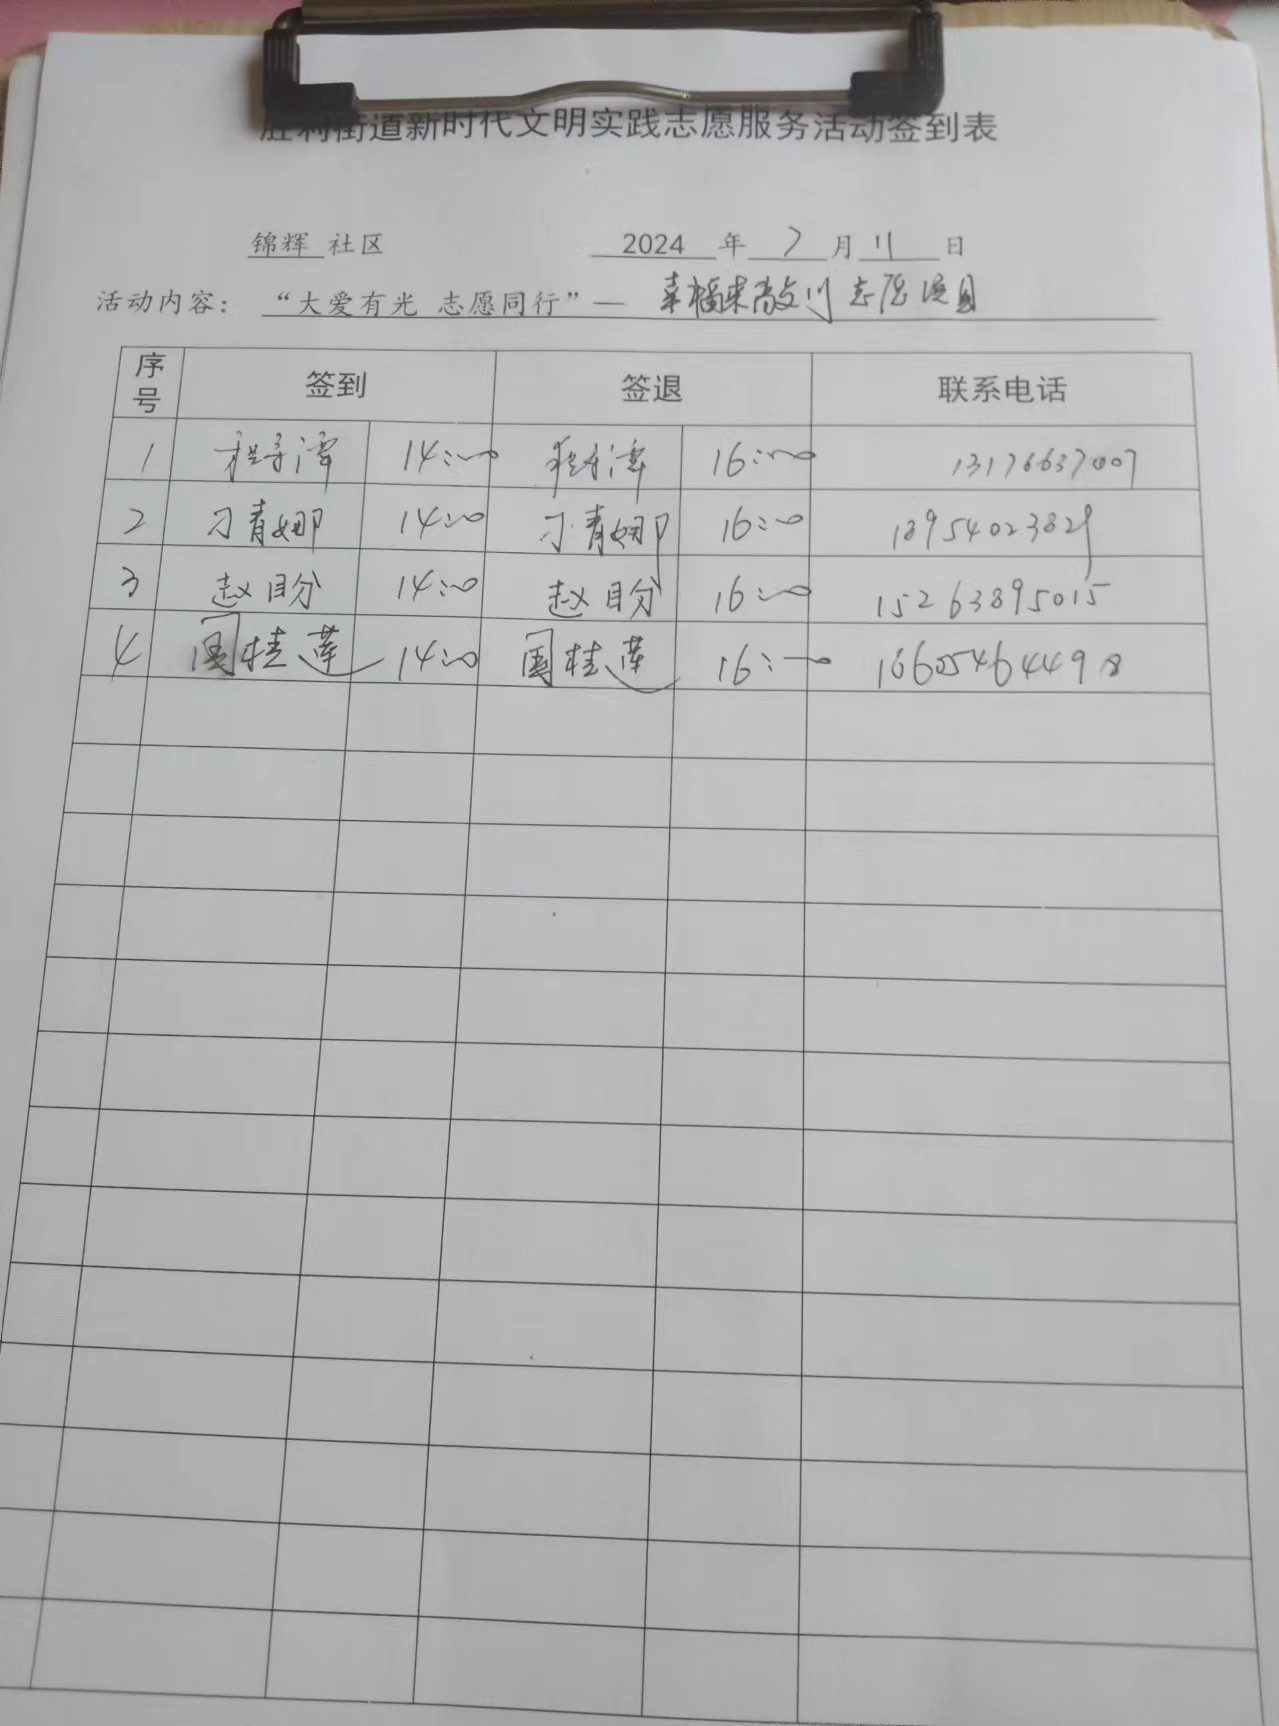 胜利街道新时代文明实践志愿服务活动签到表
锦辉 社区 2024 年 7 月 11 日
活动内容： “大爱有光 志愿同行”— 幸福来 志愿项目
序号 签到 签退 联系电话
1 14:00 16:00 13176637007
2 刁青娜 14:00 刁青娜 16:00 18954023829
3 赵盼 14:00 赵盼 16:00 15263895015
4 国桂莲 14:00 国桂莲 16:00 16605464498